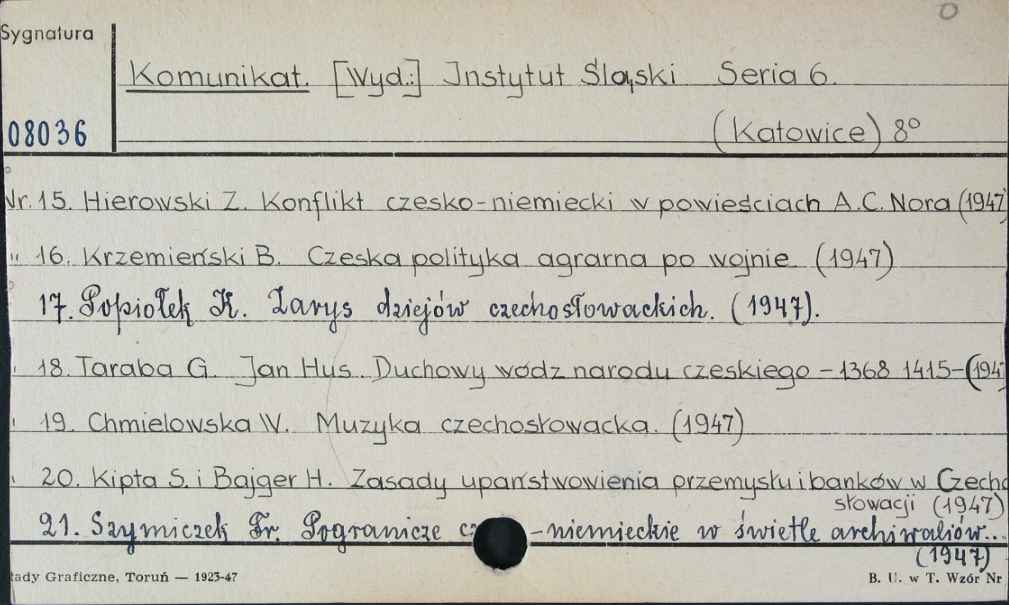 0
Sygnatura
Komunikat. [Wyd.:] Instytut Śląski Seria 6.
08036
(Katowice) 8°
Nr. 15. Hierowski Z. Konflikt czesko-niemiecki w powieściach A.C. Nora (1947
" 16. Krzemieński B. Czeska polityka agrarna po wojnie (1947)
17. Popiołek K. Zarys dziejów czechosłowackich. (1947).
18. Taraba G. Jan Hus. Duchowy wódz narodu czeskiego - 1368 1415 - (194
19. Chmielowska W. Muzyka czechosłowacka. (1947)
20. Kipta S. i Bajger H. Zasady upaństwowienia przemysłu i banków w Czecho
słowacji (1947)
21. Szymiczek Fr. Pogranicze cz -niemieckie w świetle archiwaliów...
(1947)
łady Graficzne, Toruń — 1923-47
B. U. w T. Wzór Nr